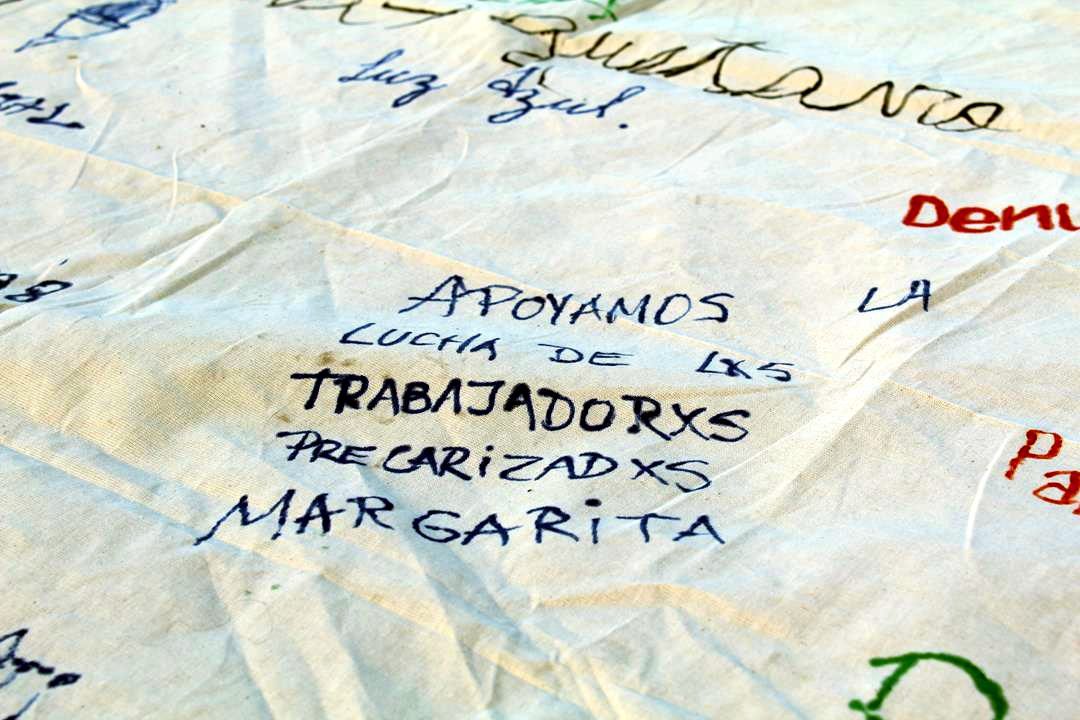 Luz Azul.
Denu
APOYAMOS LA
LUCHA DE LXS
TRABAJADORXS
PRECARIZADXS
MARGARITA
Pa